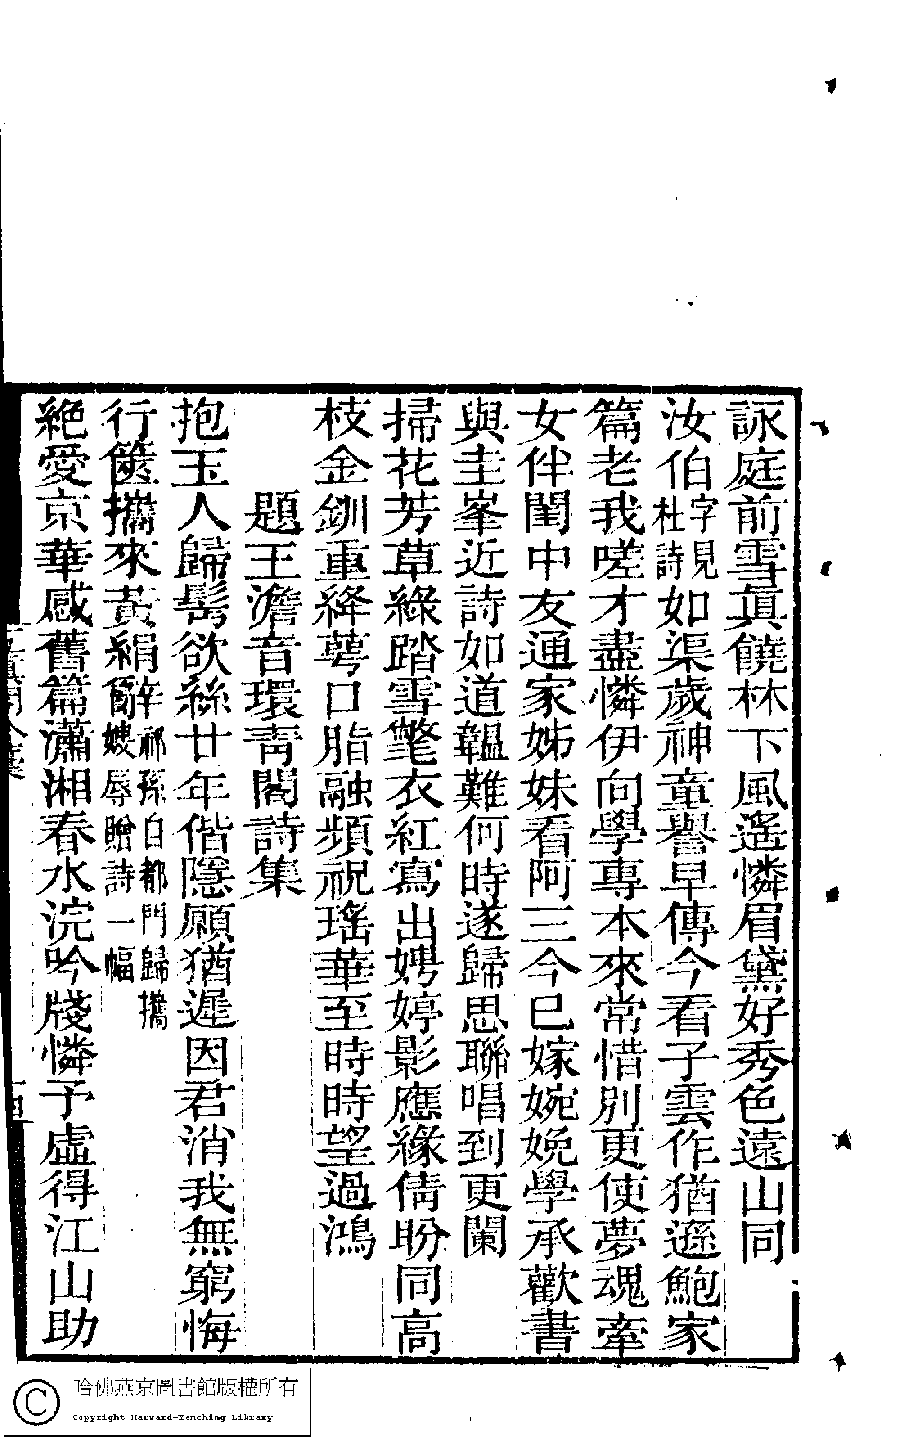 詠庭前雪眞饒林下風遙憐眉黛好秀色遠山同
汝伯字見杜詩如渠歲神童譽早傳今看子雲作猶遜鮑家
篇老我嗟才盡憐伊向學專本來常惜別更使夢魂牽
女伴閨中友通家姊妹看阿三今已嫁婉娩學承歡書
與圭峯近詩如道韞難何時遂歸思聯唱到更闌
掃花芳草綠踏雪氅衣紅寫出娉婷影應緣倩盼同高
枝金釧重絳萼口脂融頻祝瑤華至時時望過鴻
題王澹音環靑閣詩集
抱玉人歸髩欲絲廿年偕隱願猶遲因君消我無窮悔
行篋攜來黃絹辭祁孫自都門歸攜嫂辱贈詩一幅
絶愛京華感舊篇瀟湘春水浣吟牋憐予虛得江山助
哈佛燕京圖書館版權所有
Copyright Harvard-Yenching Library